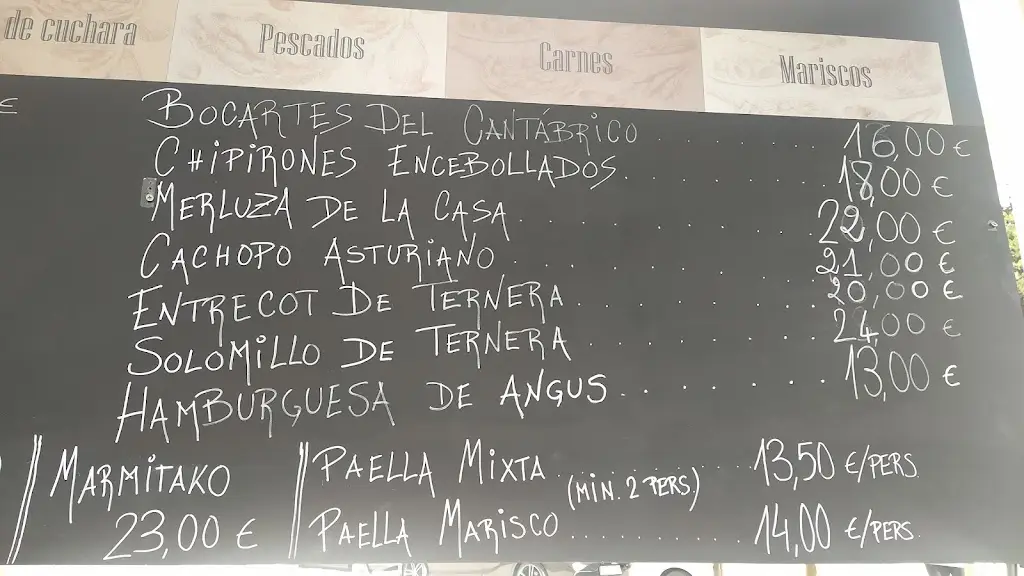 de cuchara
Pescados
Carnes
Mariscos
€
BOCARTES DEL CANTÁBRICO . . . . . . 16,00 €
CHIPIRONES ENCEBOLLADOS. . . . . . . . 18,00 €
MERLUZA DE LA CASA . . . . . . . . . 22,00 €
CACHOPO ASTURIANO . . . . . . . . . 21,00 €
ENTRECOT DE TERNERA . . . . . . . . 20,00 €
SOLOMILLO DE TERNERA . . . . . . . . 24,00 €
HAMBURGUESA DE ANGUS . . . . . . . 13,00 €
MARMITAKO
23,00 €
PAELLA MIXTA . . . . . . . . 13,50 €/PERS.
(MIN. 2 PERS.)
PAELLA MARISCO . . . . . . . . 14,00 €/PERS.